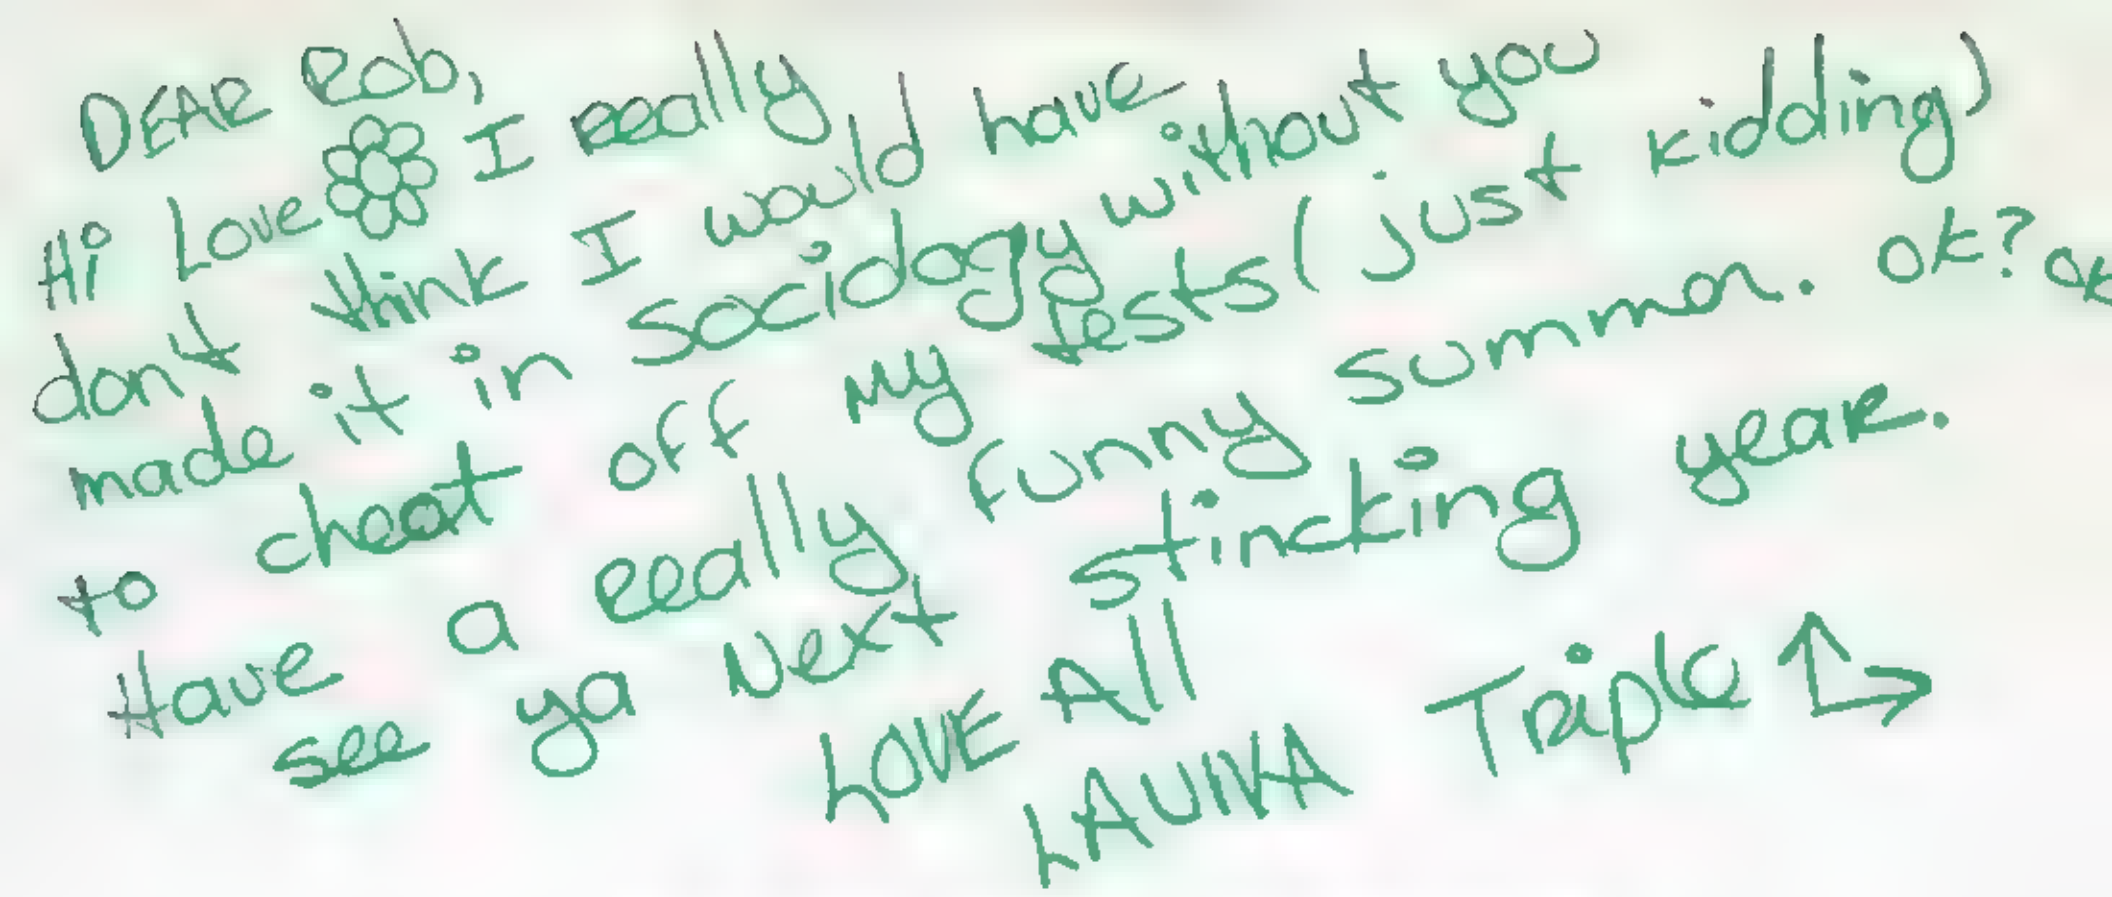 DEAR Rob,
Hi Love I really
don't think I would have
made it in sociology without you
to cheat off my tests (just kidding)
Have a really funny summer. ok? ok
see ya Next stincking year.
LOVE All
Triple